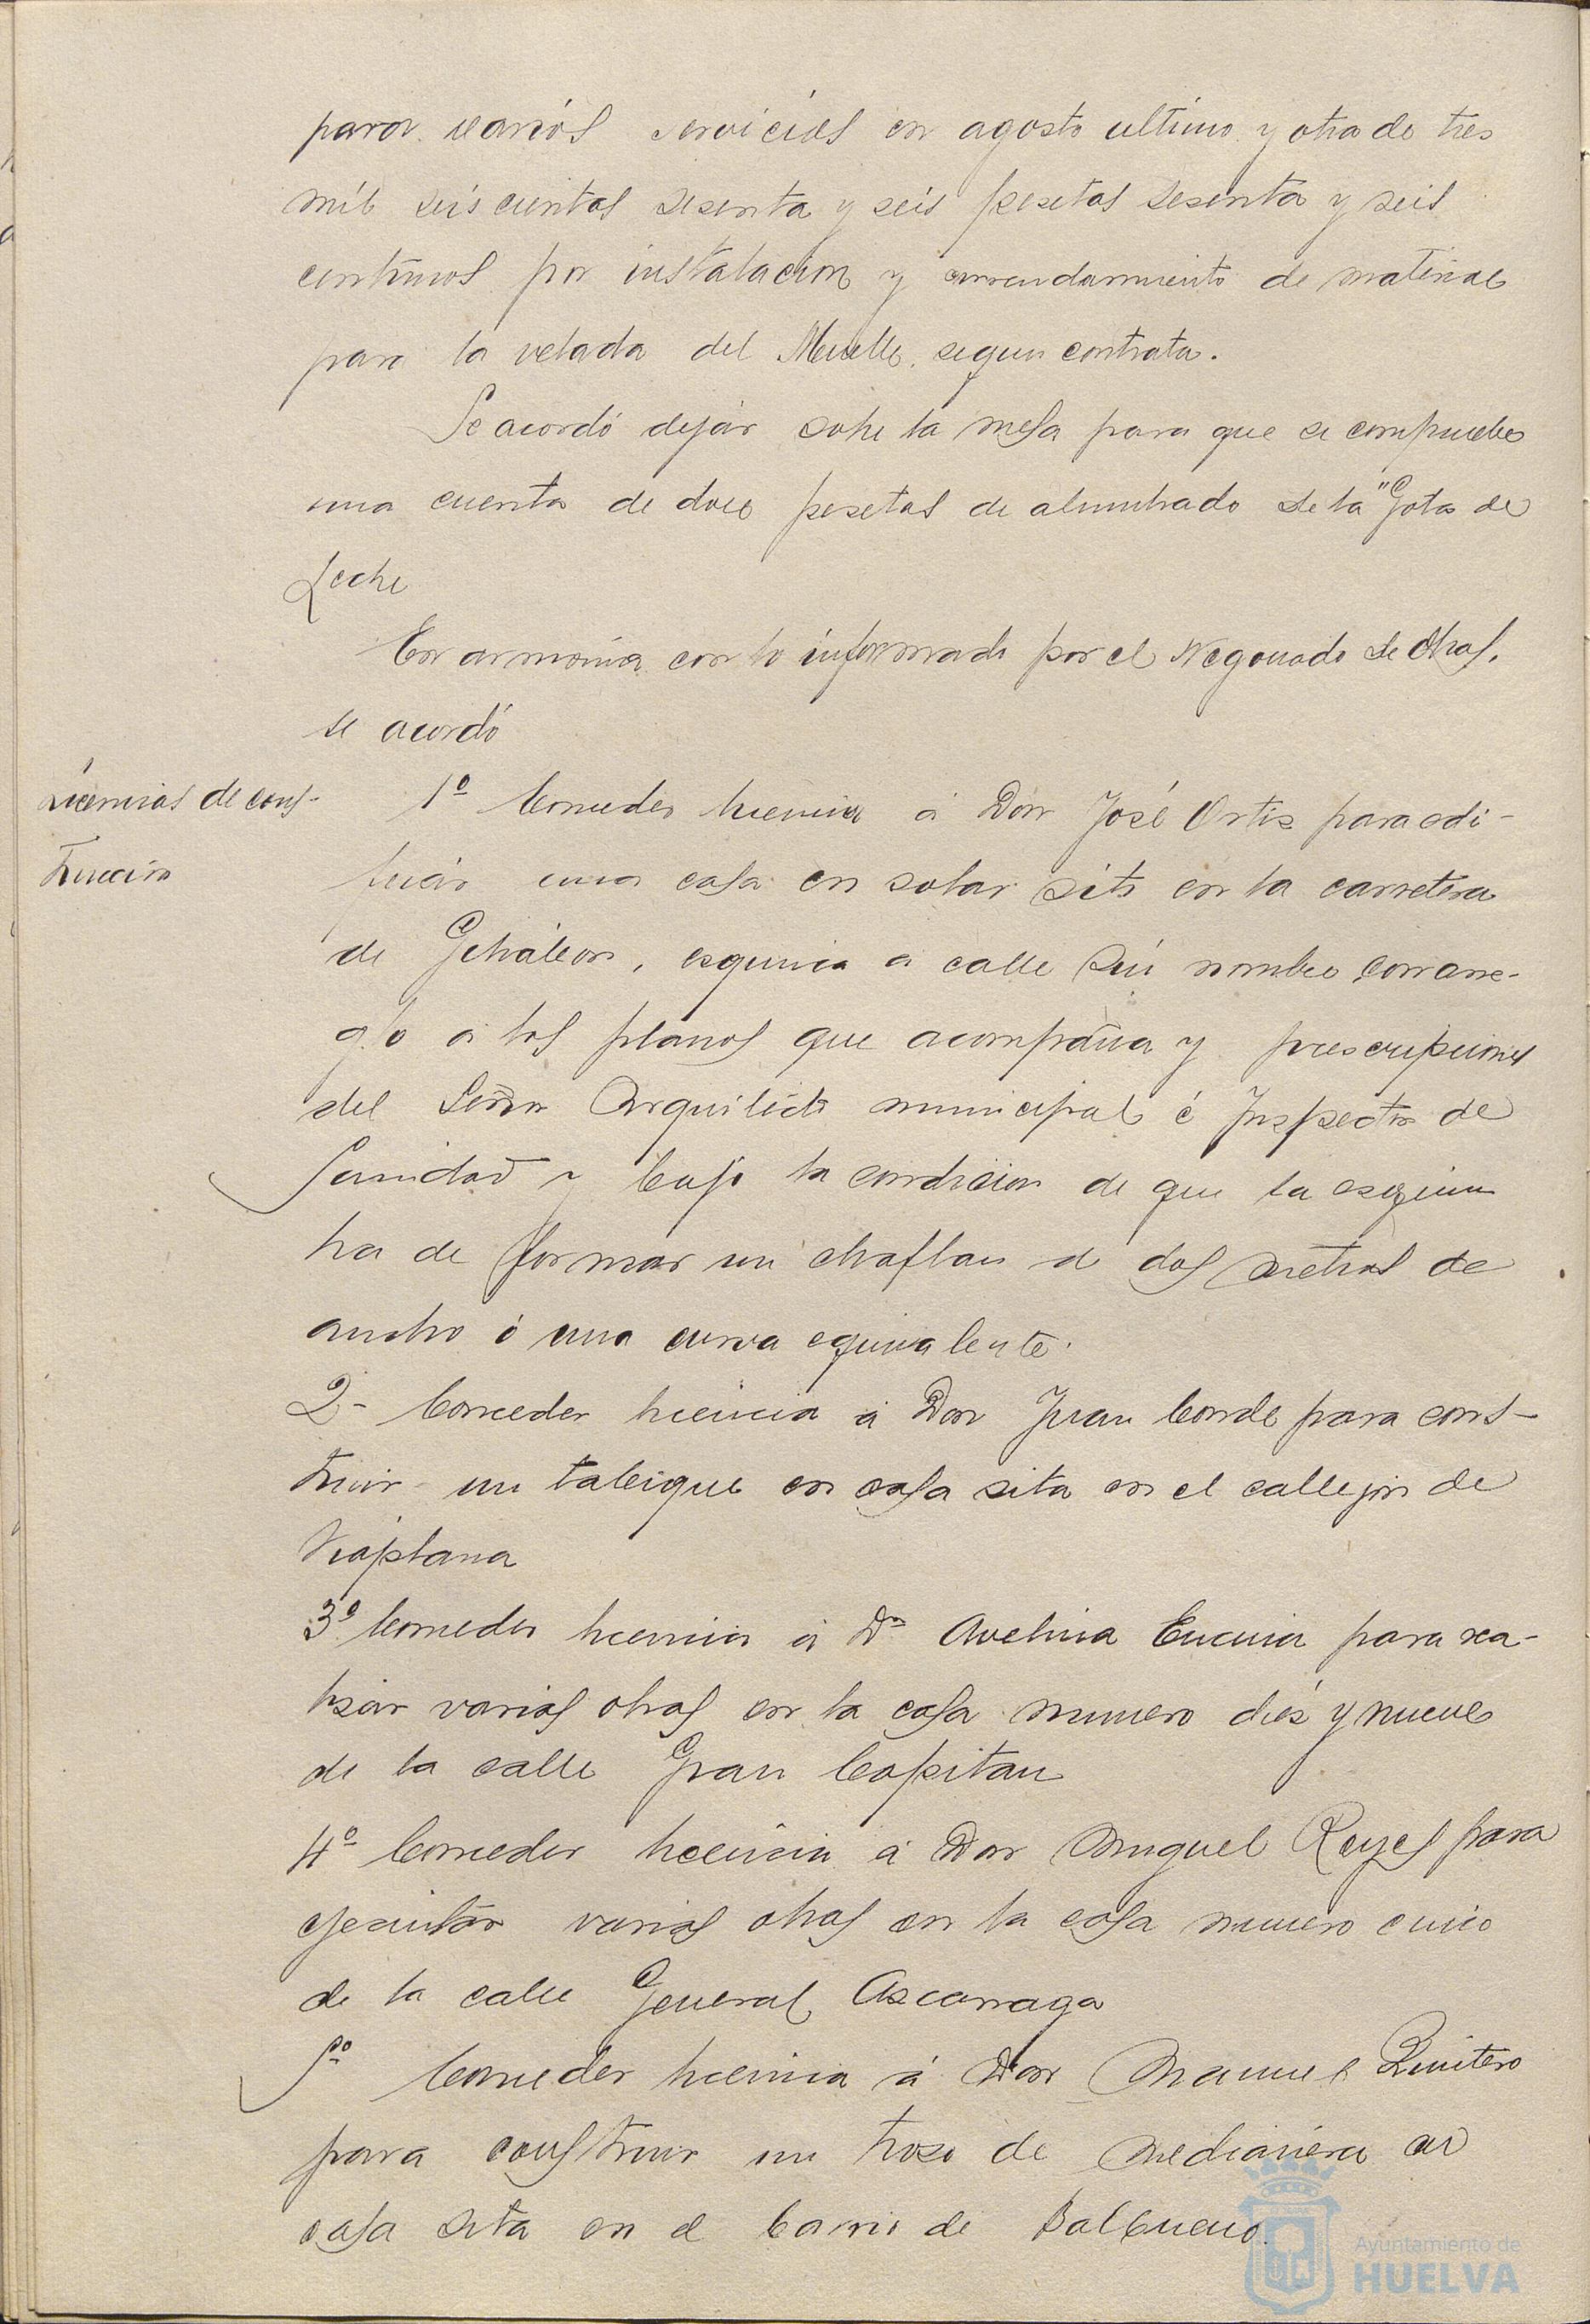 para varios servicios en agosto ultimo y otra de tres
mil seiscientas sesenta y seis pesetas sesenta y seis
centimos por instalacion y arrendamiento de material
para la velada del Muelle, segun contrata.
Se acordó dejar sobre la mesa para que se compruebe
una cuenta de doce pesetas de alumbrado de la "Gota de
Leche
En armonia con lo informado por el Negociado de Obras,
se acordó
Licencias de cons-
trucción
1º Conceder licencia á Don José Ortiz para edi-
ficar una casa en solar sito en la carretera
de Gibráleon, esquina a calle sin nombre con arre-
glo a los planos que acompaña y prescripciones
del Señor Arquitecto municipal é Inspector de
Sanidad y bajo la condicion de que la esquina
ha de formar un chaflan de dos metros de
ancho ó una curva equivalente.
2- Conceder licencia á Don Juan Conde para cons-
truir un tabique en casa sita en el callejon de
3º Conceder licencia á Dª Avelina Encina para rea-
lizar varias obras en la casa numero diéz y nueve
de la calle Gran Capitan
4º Conceder licencia á Don Miguel Reyes para
ejecutar varias obras en la casa numero cinco
de la calle General Azcarraga
5º Conceder licencia á Don Manuel Quintero
para construir un trozo de medianera en
casa sita en el barrio de Balbueno.
Ayuntamiento de
HUELVA